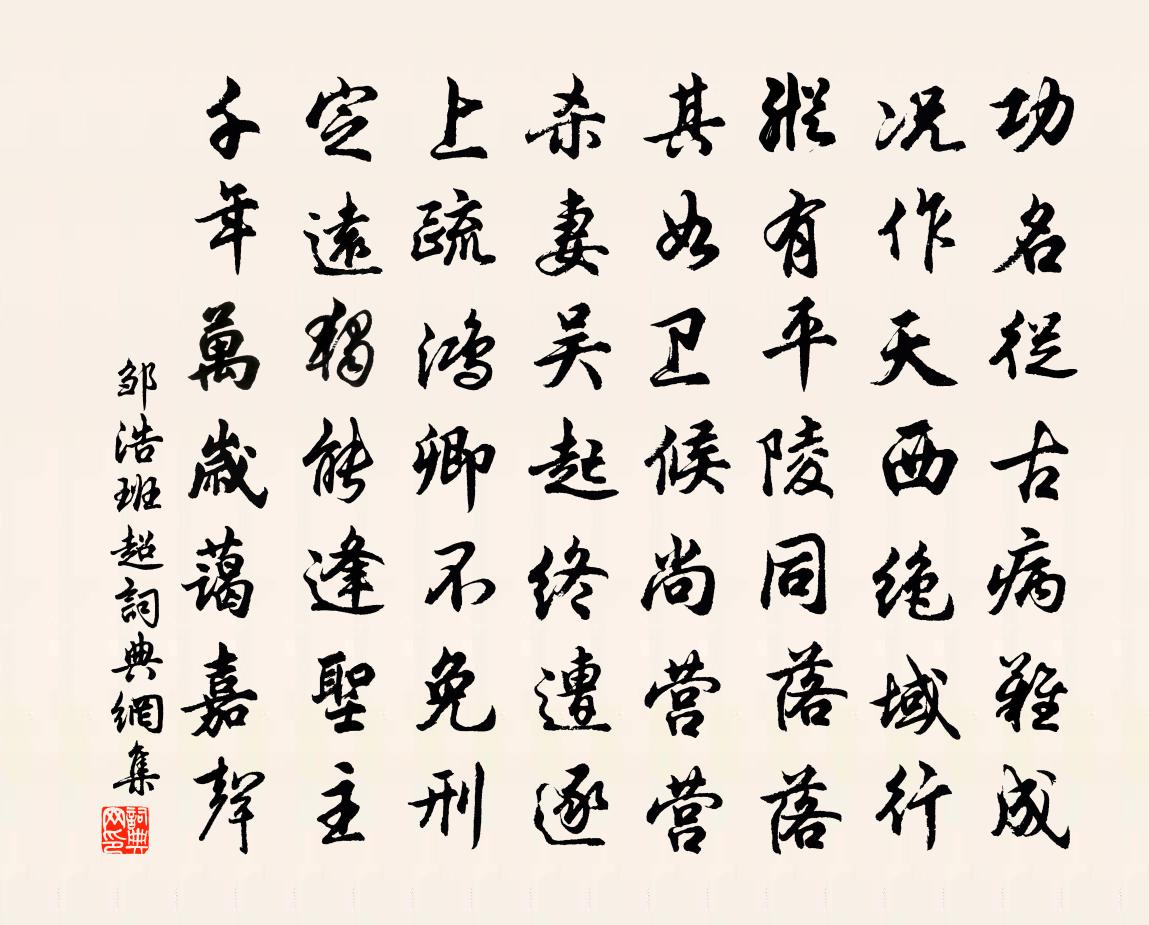 功名從古病難成
况作天西绝域行
縱有平陵同落落
其如卫候尚营营
杀妻吴起终遭逐
上疏鸿卿不免刑
定遠獨能逢聖主
千年萬歲藹嘉聲
邹浩班超詞典網集
詞典网印